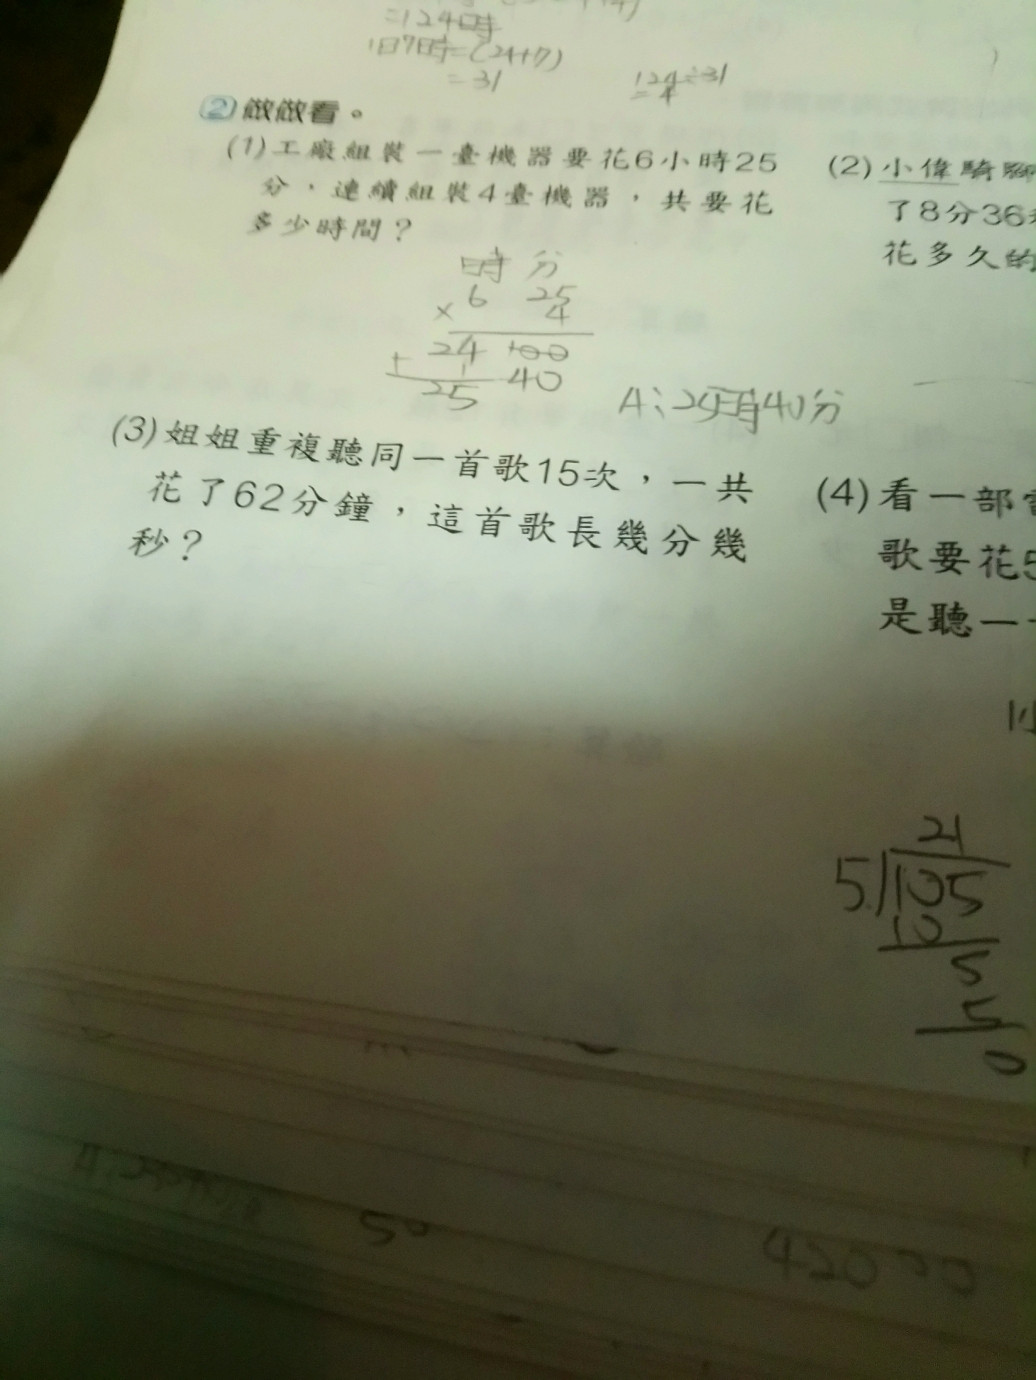 =124時
1日7時=(24+7)
=31
124÷31
=4
② 做做看。
(1)工廠組裝一臺機器要花6小時25
分，連續組裝4臺機器，共要花
多少時間？
時 分
6 25
× 4
24 100
+ 1
25 40
A:25時40分
(2)小偉騎腳
了8分36
花多久的
(3)姐姐重複聽同一首歌15次，一共
花了62分鐘，這首歌長幾分幾
秒？
(4)看一部
歌要花5
是聽一
21
5)105
10
5
5
0
50
42000